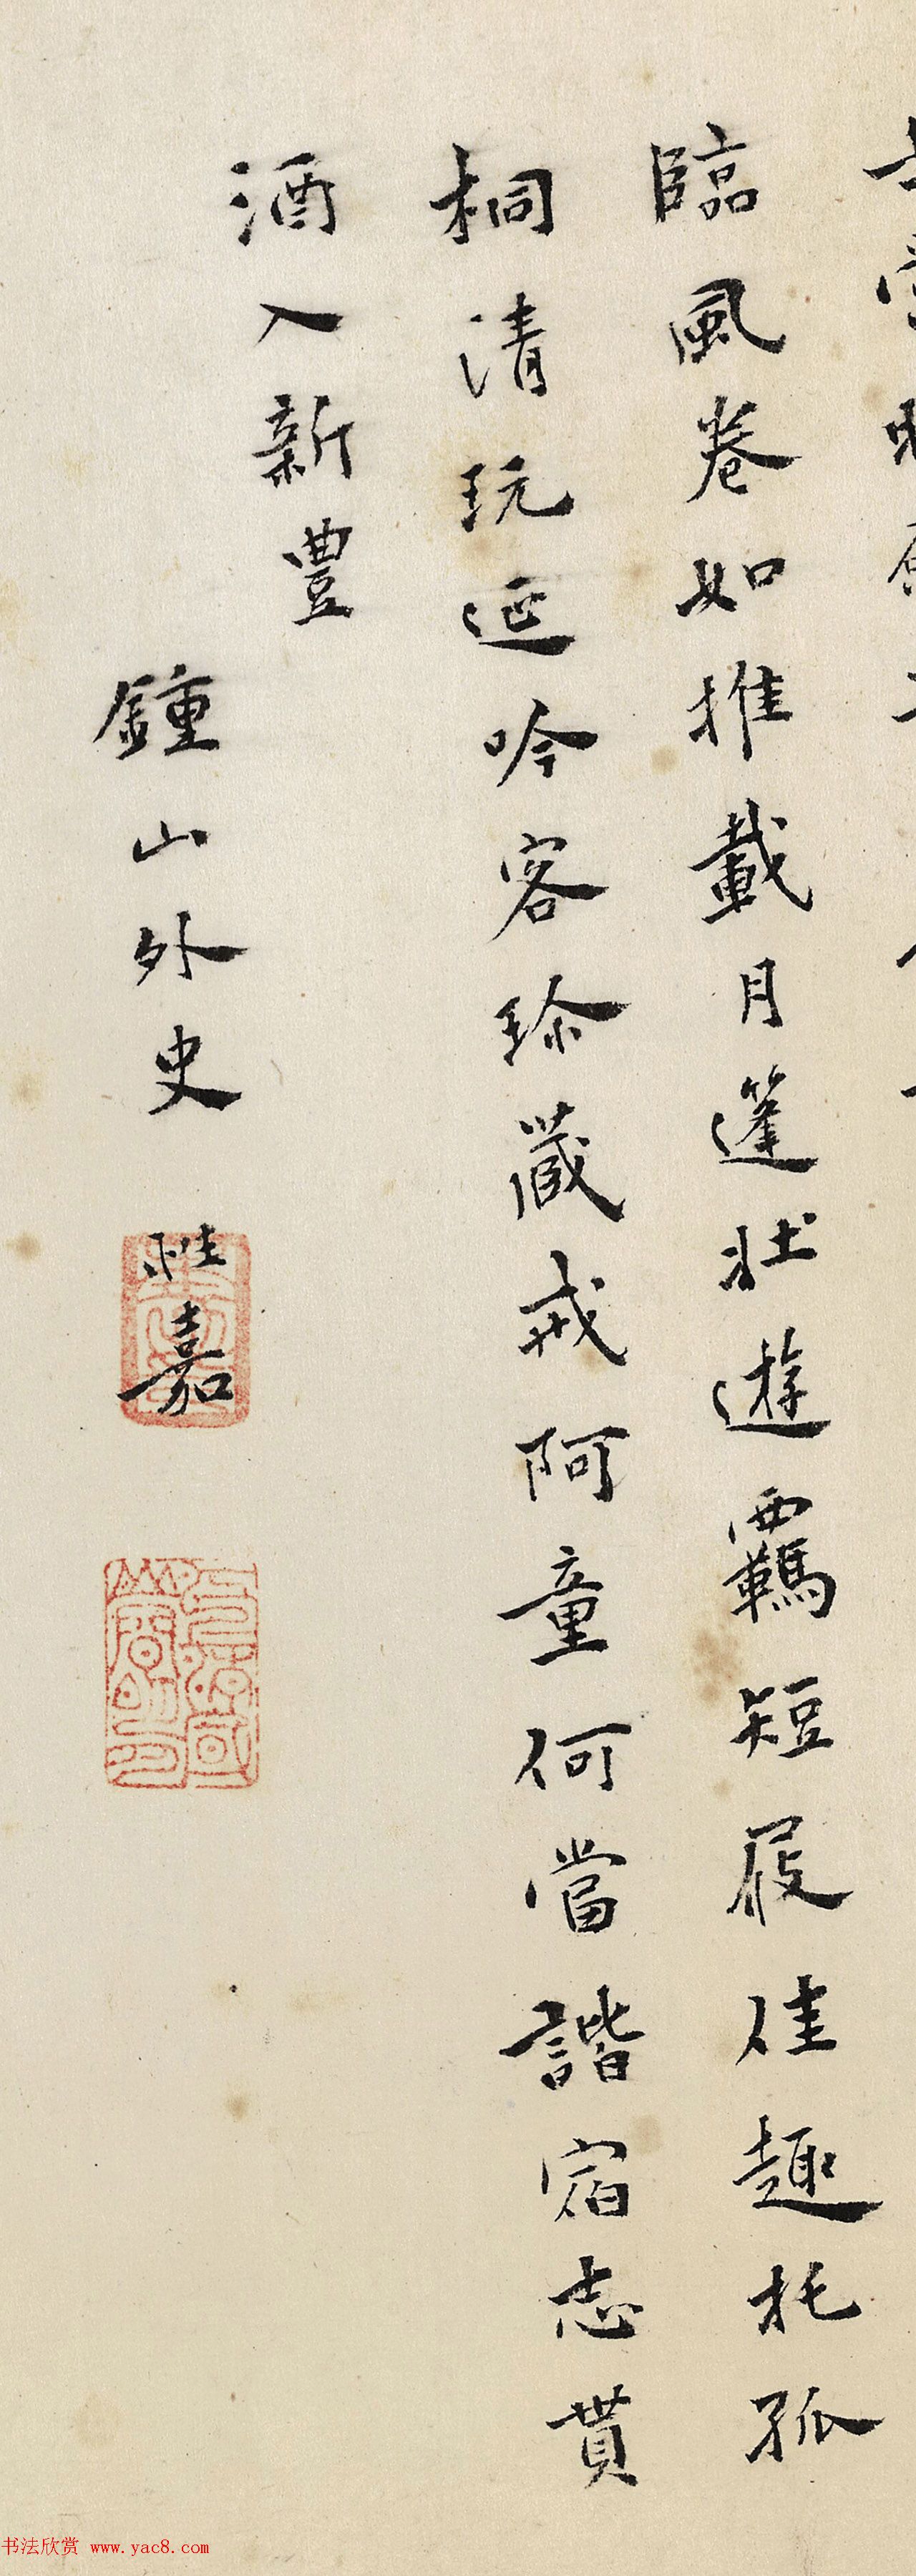 臨風卷如推載月蓬壯遊羈短屐佳趣托孤
桐清玩延吟客珍藏戒阿童何當諧宿志貰
酒入新豊
鍾山外史
嘉
书法欣赏 www.yac8.com